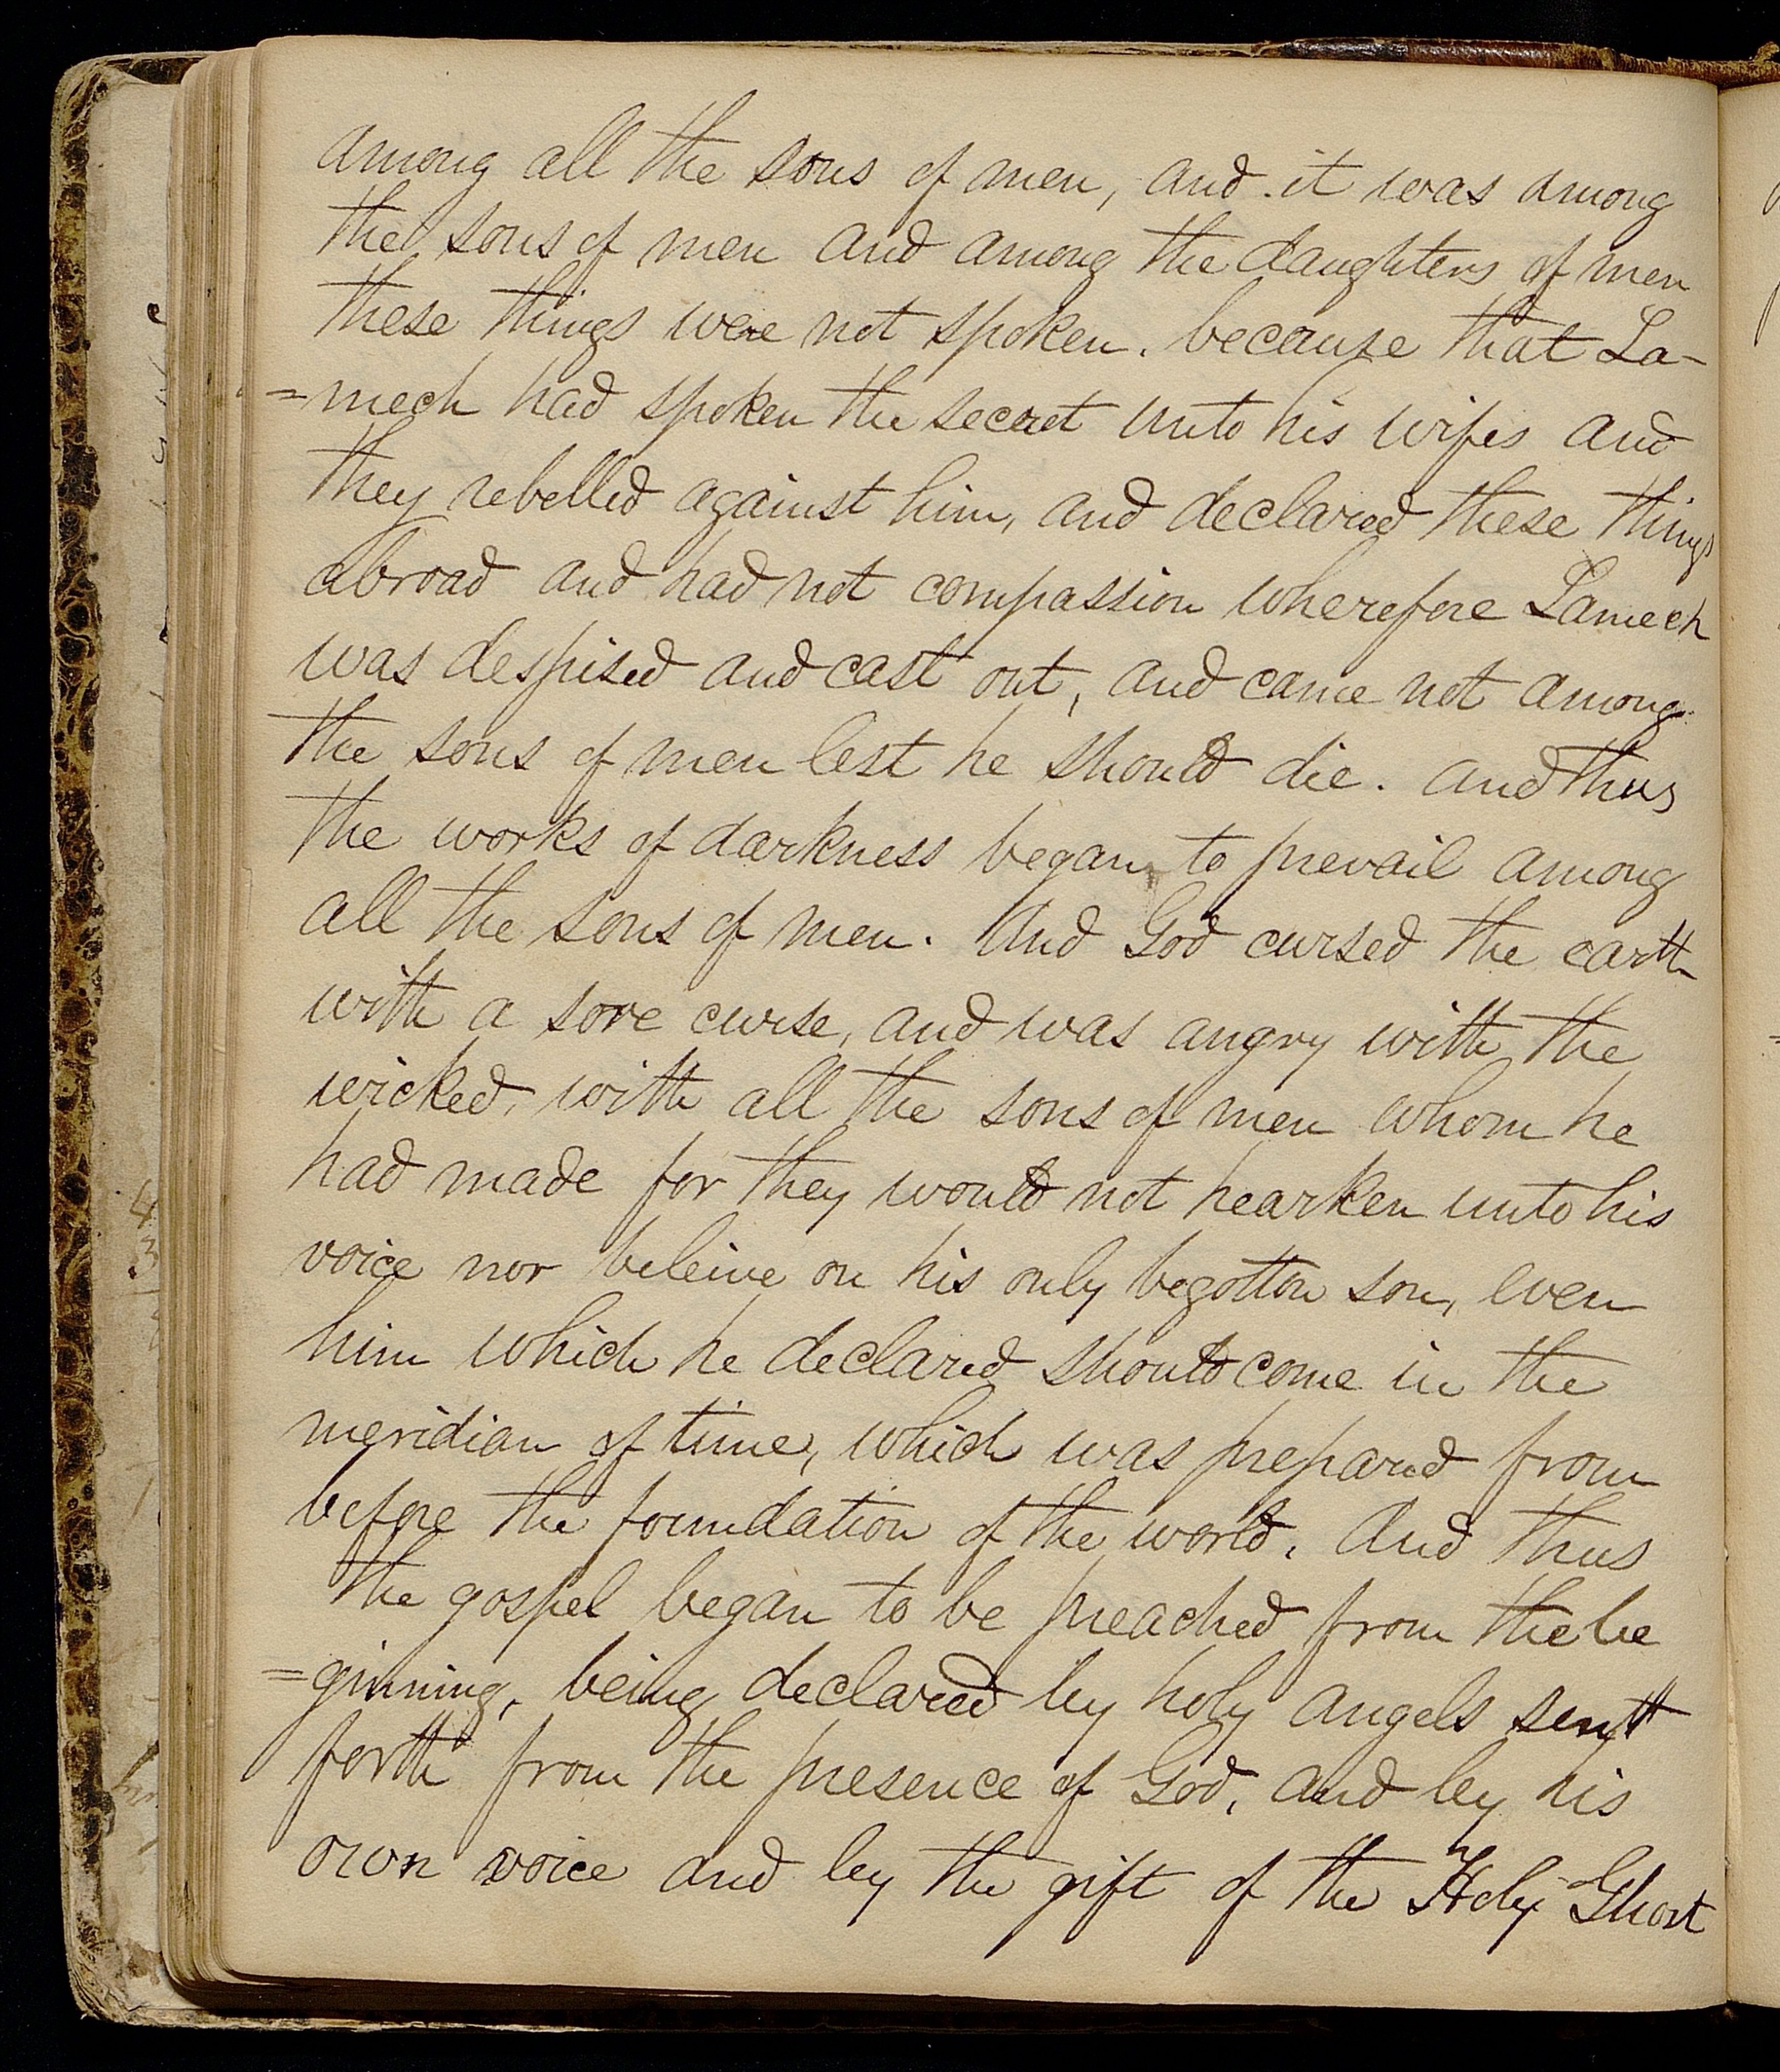 among all the sons of men, and it was among
the sons of men and among the daughters of men
these things were not spoken. because that La-
=mech had spoken the secret unto his wifes and
they rebelled against him, and declared these things
abroad and had not compassion wherefore Lamech
was despised and cast out, and came not among
the sons of men lest he should die. and thus
the works of darkness began to prevail among
all the sons of men. And God cursed the earth
with a sore curse, and was angry with the
wicked, with all the sons of men whom he
had made for they would not hearken unto his
voice nor beleive on his only begotton son, even
him which he declared should come in the
meridian of time, which was prepared from
before the foundation of the world. And thus
the gospel began to be preached from the be
=ginning, being declared by holy angels sent
forth from the presence of God, and by his
own voice and by the gift of the Holy Ghost